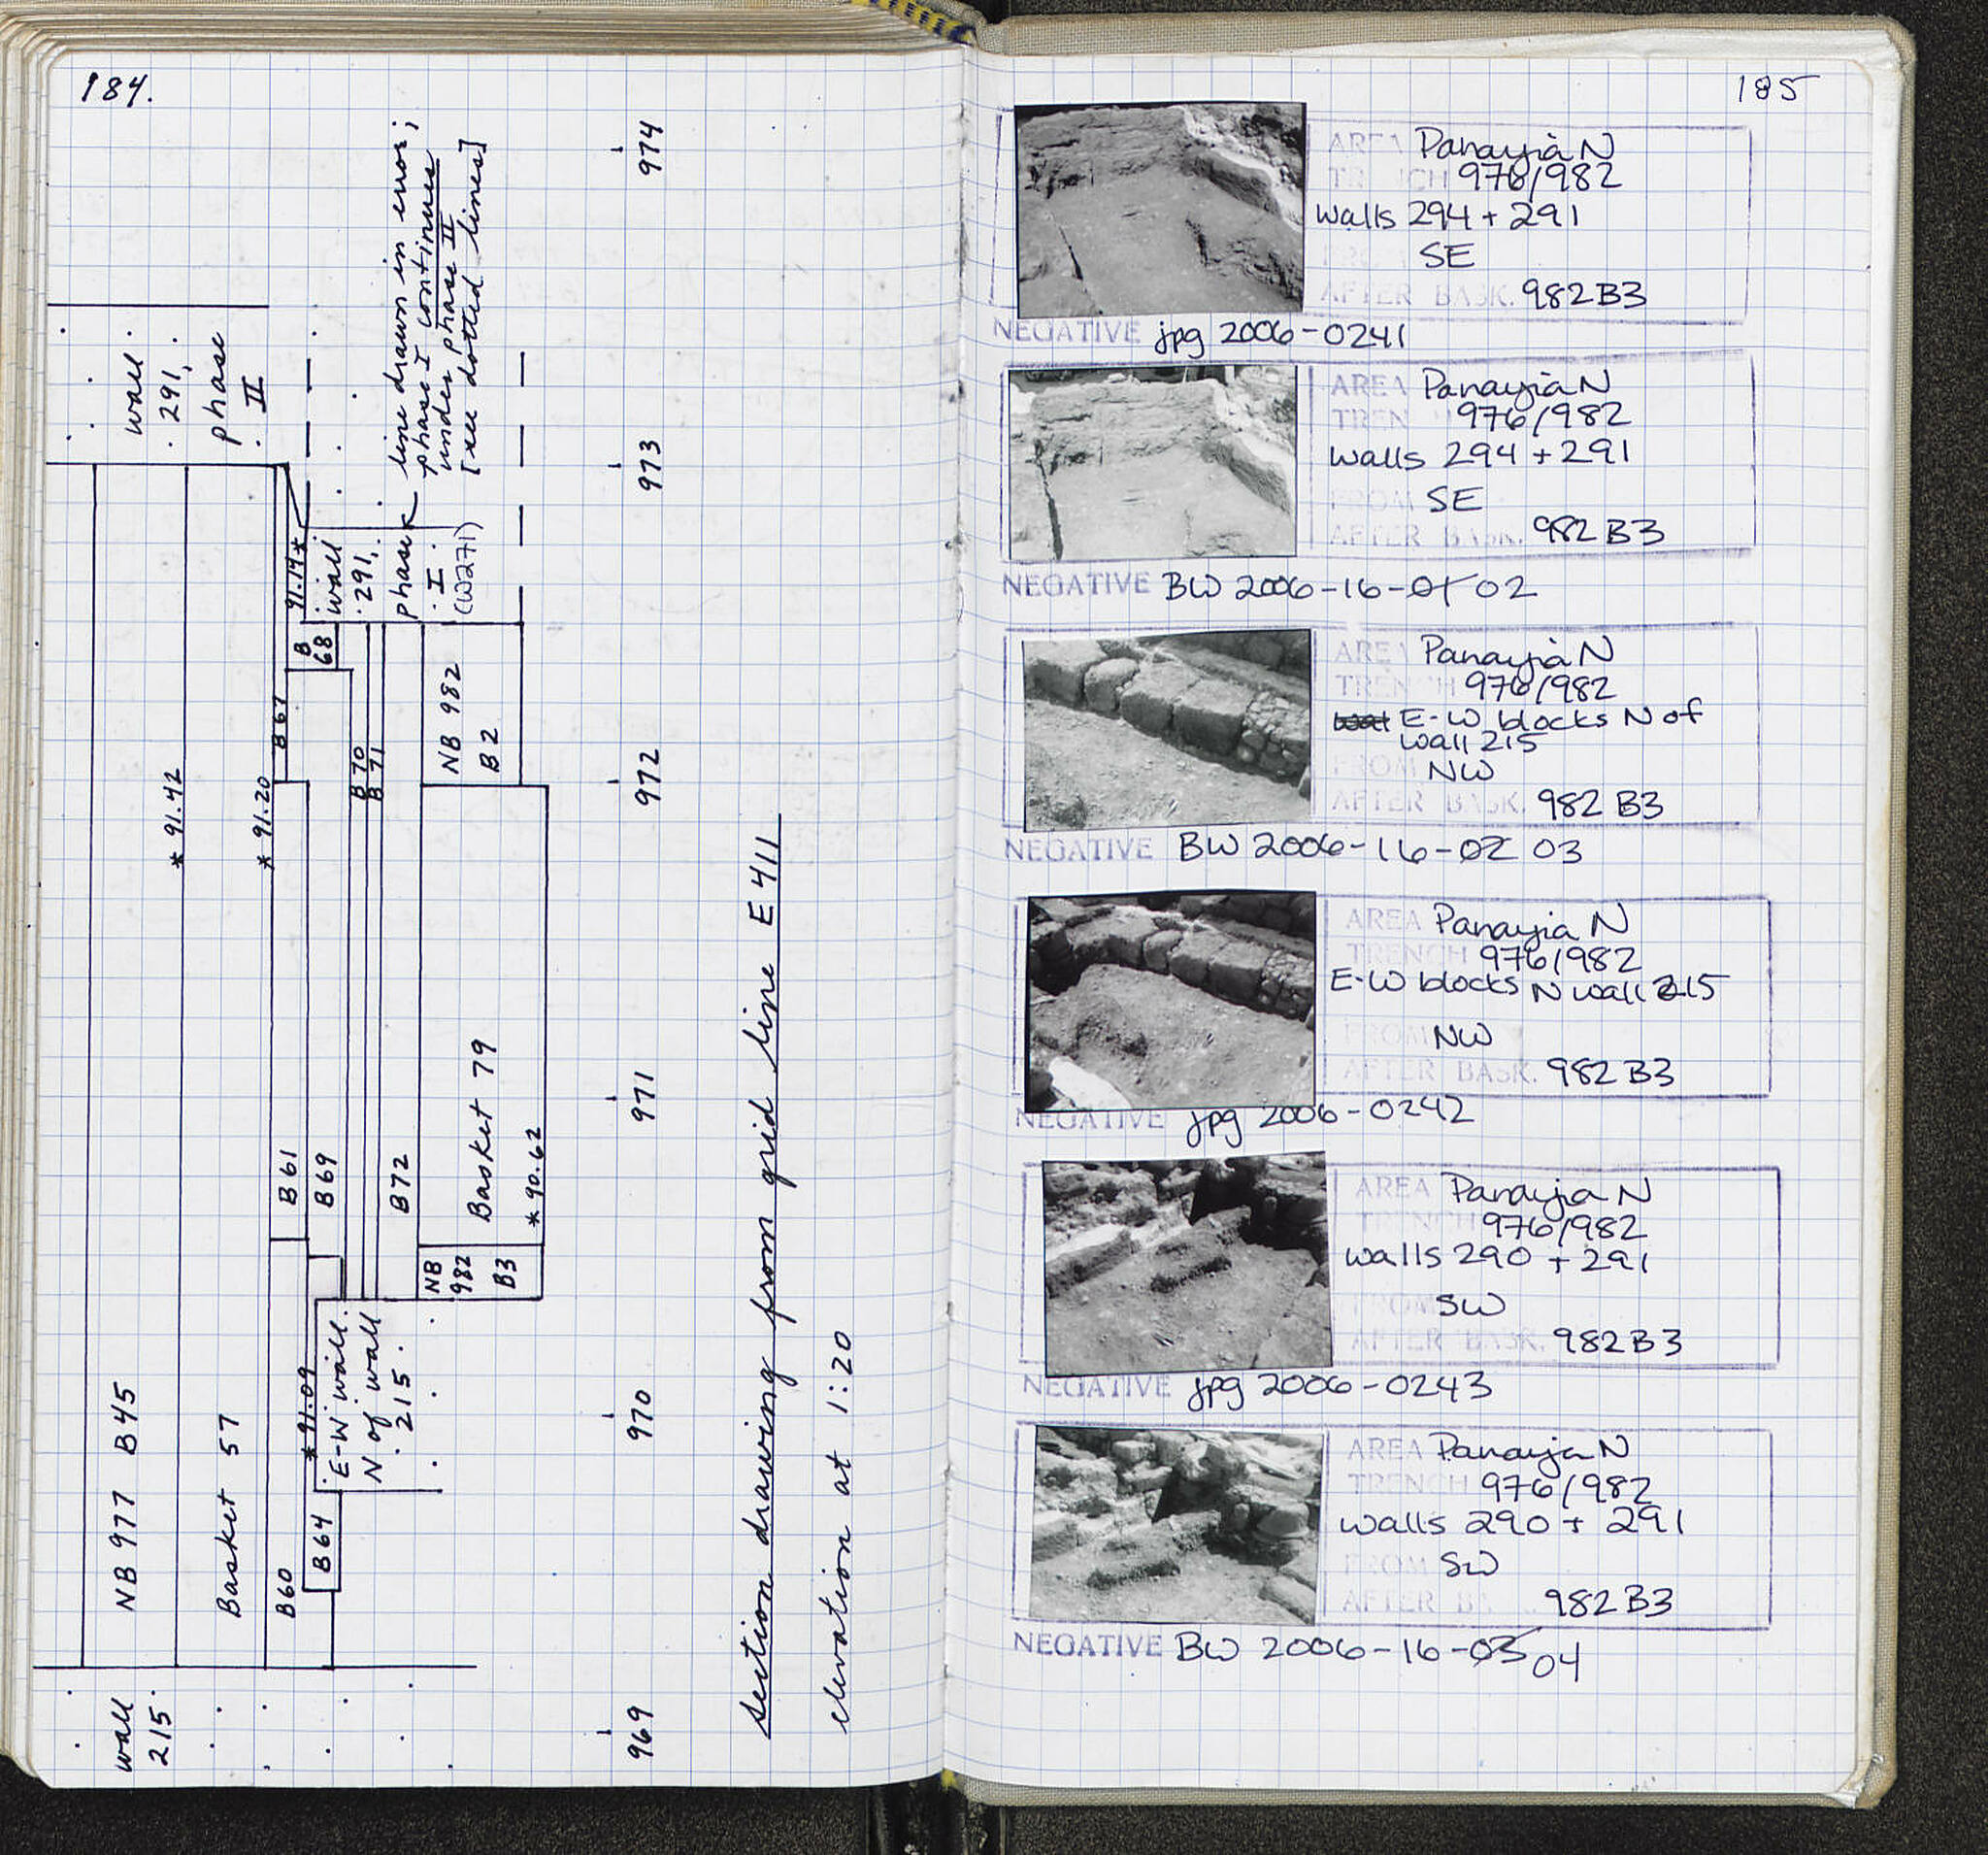 184.
wall
215
NB 977 B45
Basket 57
B60
B64
* 91.09
E-W wall
N of wall
215
B61
B69
B72
NB
982
B3
Basket 79
* 90.62
* 91.42
* 91.20
B67
B
68
B70
B71
NB 982
B2
91.14*
wall
291,
phase
I
(W271)
wall
291,
phase
II
line drawn in error;
phase I continues
under phase II
[see dotted lines]
969
970
971
972
973
974
section drawing from grid line E 411
elevation at 1:20
185
AREA Panayia N
TRENCH 976/982
walls 294 + 291
FROM SE
AFTER BASK. 982 B3
NEGATIVE jpg 2006-0241
AREA Panayia N
TRENCH 976/982
walls 294 + 291
FROM SE
AFTER BASK. 982 B3
NEGATIVE BW 2006-16-01 02
AREA Panayia N
TRENCH 976/982
wal E-W blocks N of
wall 215
FROM NW
AFTER BASK. 982 B3
NEGATIVE BW 2006-16-02 03
AREA Panayia N
TRENCH 976/982
E-W blocks N wall 215
FROM NW
AFTER BASK. 982 B3
NEGATIVE jpg 2006-0242
AREA Panayia N
TRENCH 976/982
walls 290 + 291
FROM SW
AFTER BASK. 982 B3
NEGATIVE jpg 2006-0243
AREA Panayia N
TRENCH 976/982
walls 290 + 291
FROM SW
AFTER BA 982 B3
NEGATIVE BW 2006-16-03 04